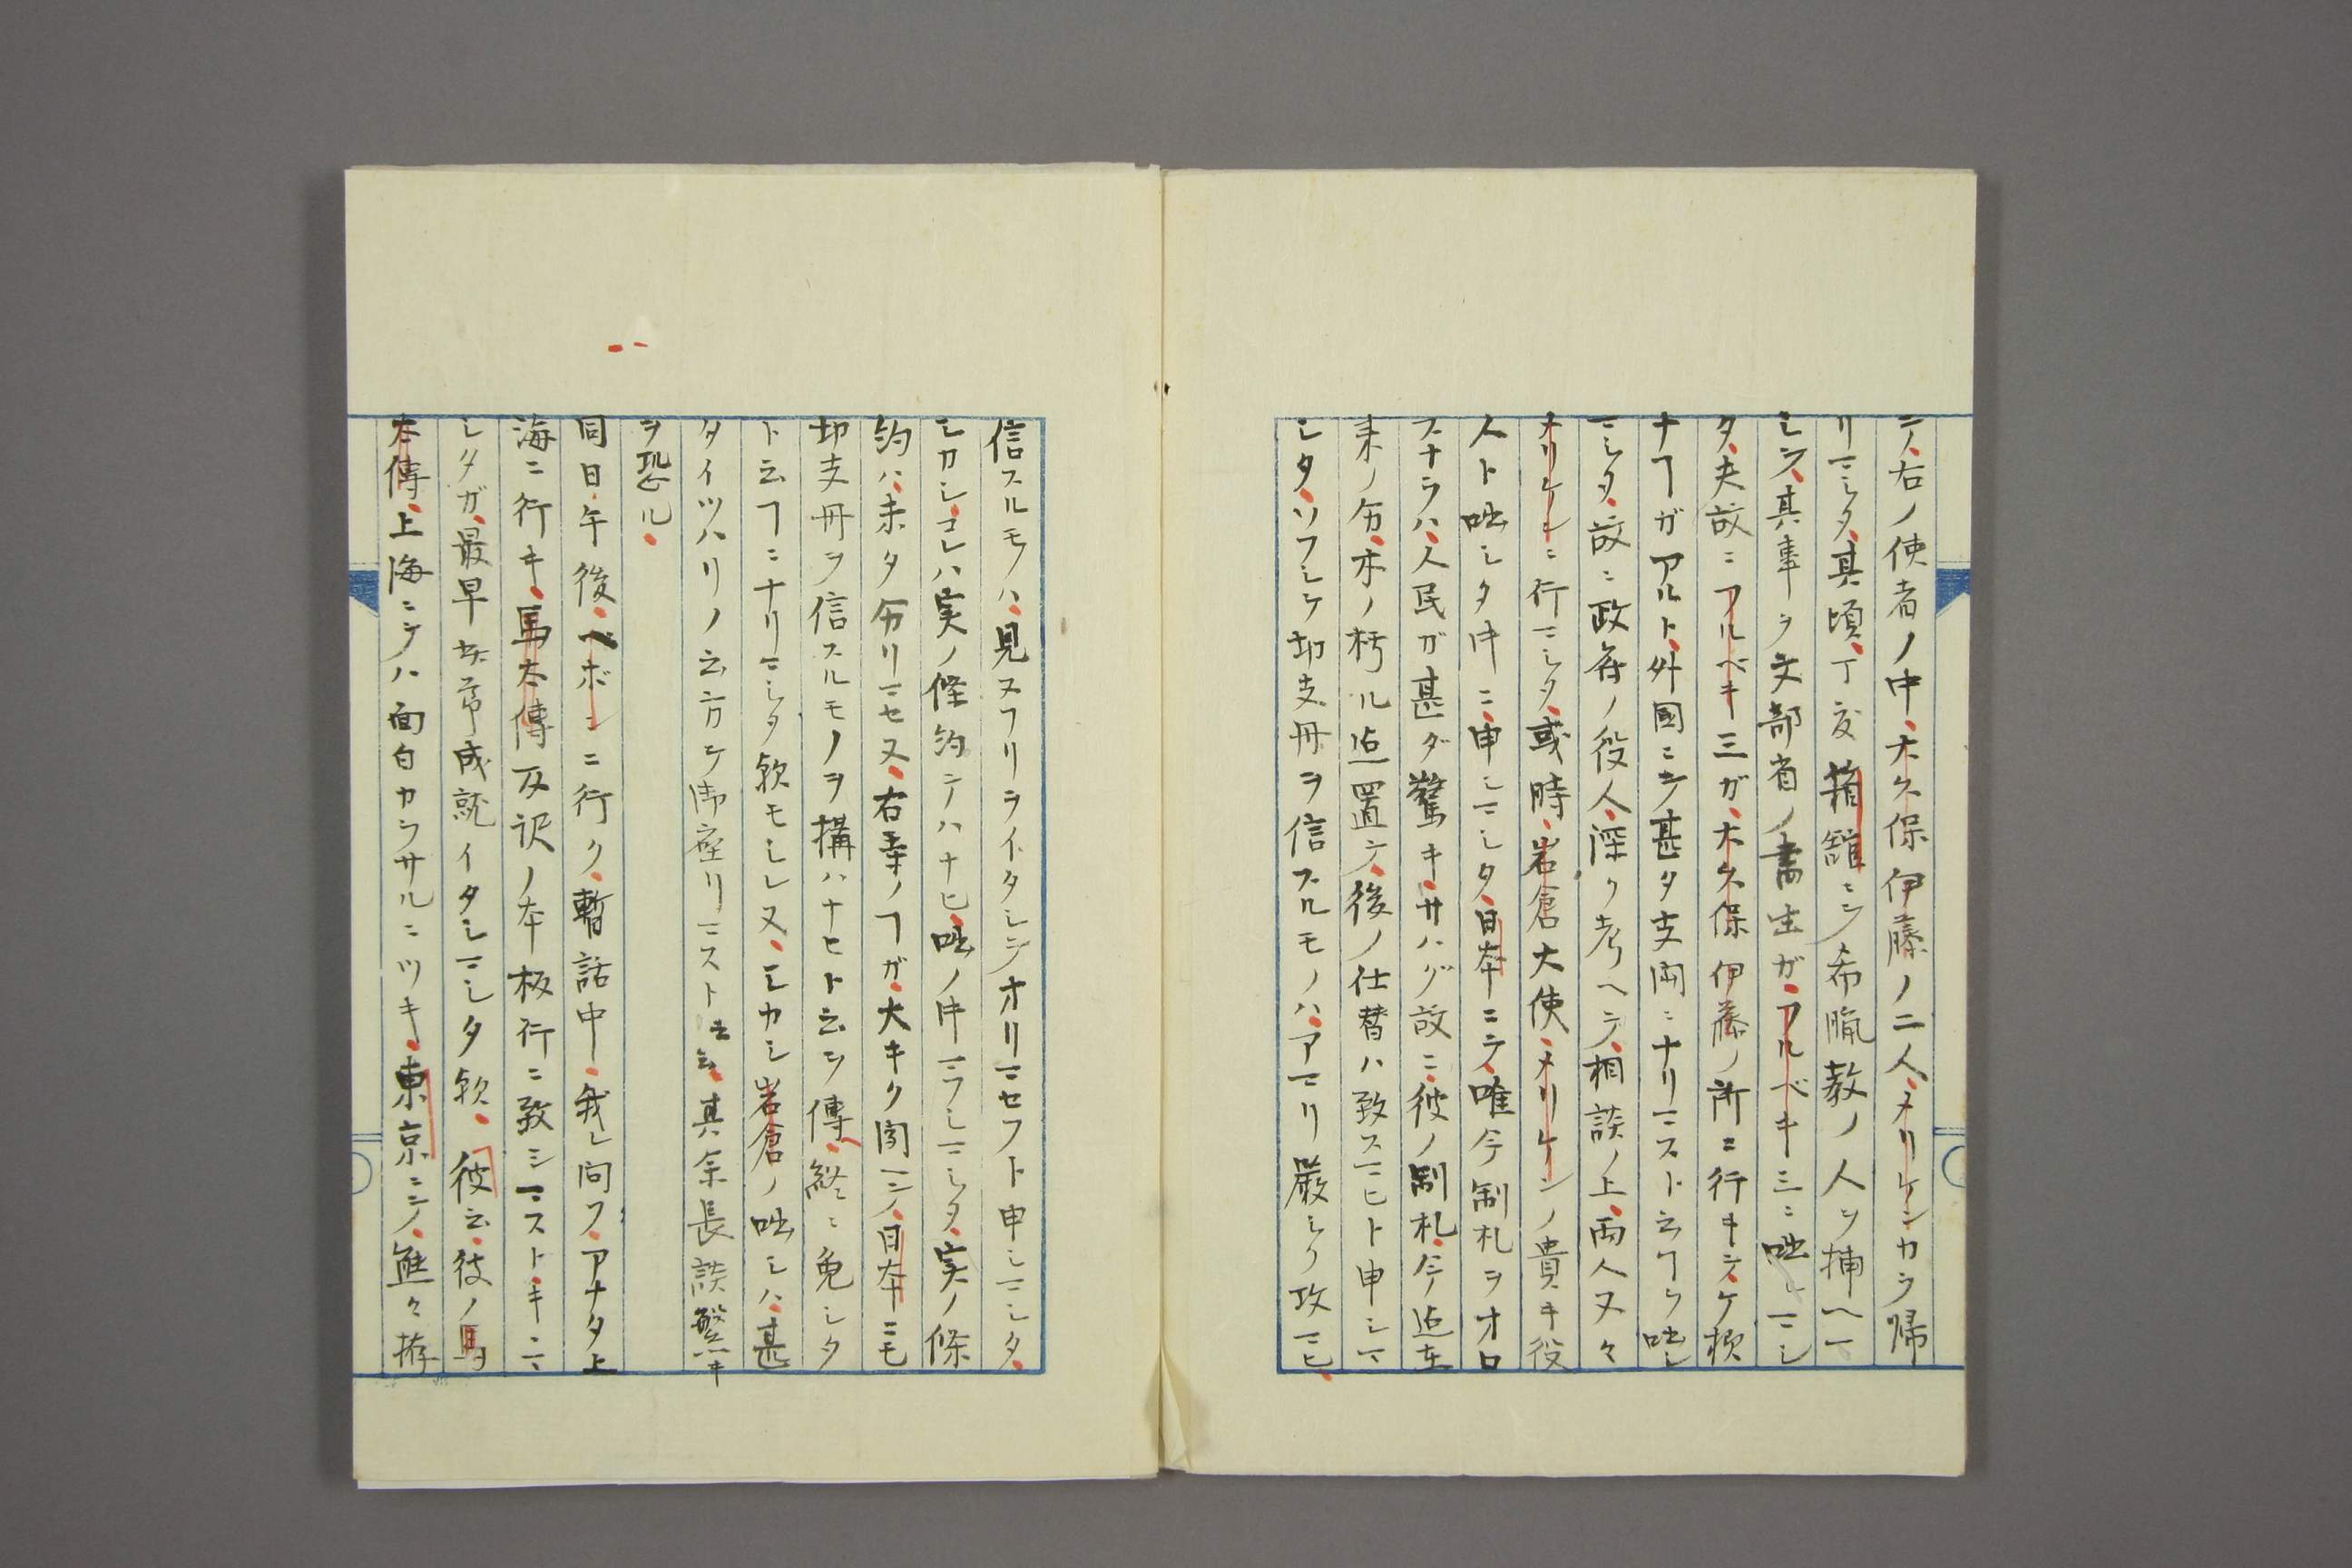 テ、右ノ使者ノ中、大久保伊藤ノ二人、メリケンカラ帰
リマシタ、其頃、丁度箱舘ニシ希臘教ノ人ヲ捕ヘマ
シタ、其事ヲ文部省ノ書生ガ、アルベキ三ニ咄シマシ
タ、夫故ニアルベキ三ガ、大久保伊藤ノ所ニ行キシテケ様
ナヿガアルト、外國ニシ甚タ支障ニナリマスト云ヿヲ咄シ
マシタ、故ニ政府ノ役人、深ク考ヘテ、相談ノ上、両人又々
メリケンニ行マシタ、或時、岩倉大使、メリケンノ貴キ役
人ト咄シタ中ニ、申シマシタ、日本ニテ、唯今制札ヲオロ
スナラハ、人民ガ甚ダ驚キサハグ故ニ、彼ノ制札、今迠在
来ノ分、木ノ朽ル迠置テ、後ノ仕替ハ致スマヒト申シマ
シタ、ソフシテ切支丹ヲ信スルモノハ、アマリ厳シク攻マヒ、
信スルモノハ、見ヌフリヲイタシテオリマセフト申シマシタ、
シカシ、コレハ実ノ條約テハナヒ、咄ノ中テフシマシタ、実ノ條
約ハ、未タ分リマセヌ、右等ノヿガ、大キク聞ヘシ、日本ニモ
切支丹ヲ信スルモノヲ搆ハナヒト云フ傳、終ニ免シタ
ト云ヿニナリマシタ歟モシレヌ、シカシ岩倉ノ咄シハ、甚
タイツハリノ云方テ御座リマスト云云、其余長談繁キ
ヲ恐ル、
同日午後、ヘボンニ行ク、暫話中、我レ问フ、アナタ上
海ニ行キ、馬太傳反訳ノ本板行ニ致シマストキニ、
シタガ、最早大帯成就イタシマシタ歟、彼云、彼ノ馬
太傳、上海ニテハ面白カラサルニツキ、東京ニテ、熊々拵